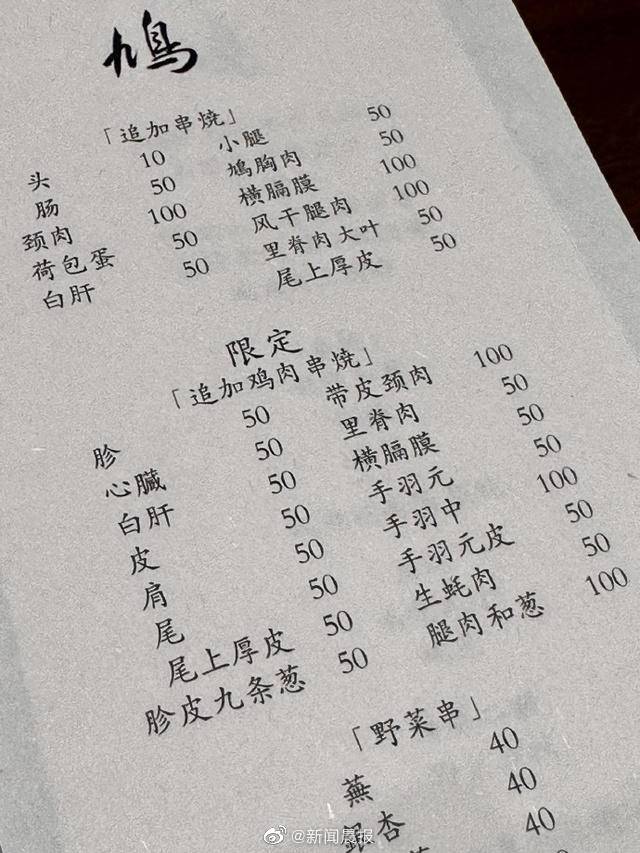 鸠
「追加串烧」
头 10
肠 50
颈肉 100
荷包蛋 50
白肝 50
小腿 50
鸠胸肉 50
横膈膜 100
风干腿肉 100
里脊肉大叶 50
尾上厚皮 50
限定
「追加鸡肉串烧」
胗 50
心臓 50
白肝 50
皮 50
肩 50
尾 50
尾上厚皮 50
胗皮九条葱 50
带皮颈肉 100
里脊肉 50
横膈膜 50
手羽元 50
手羽中 100
手羽元皮 50
生蚝肉 50
腿肉和葱 100
「野菜串」
蕪 40
銀杏 40
40
@新闻晨报